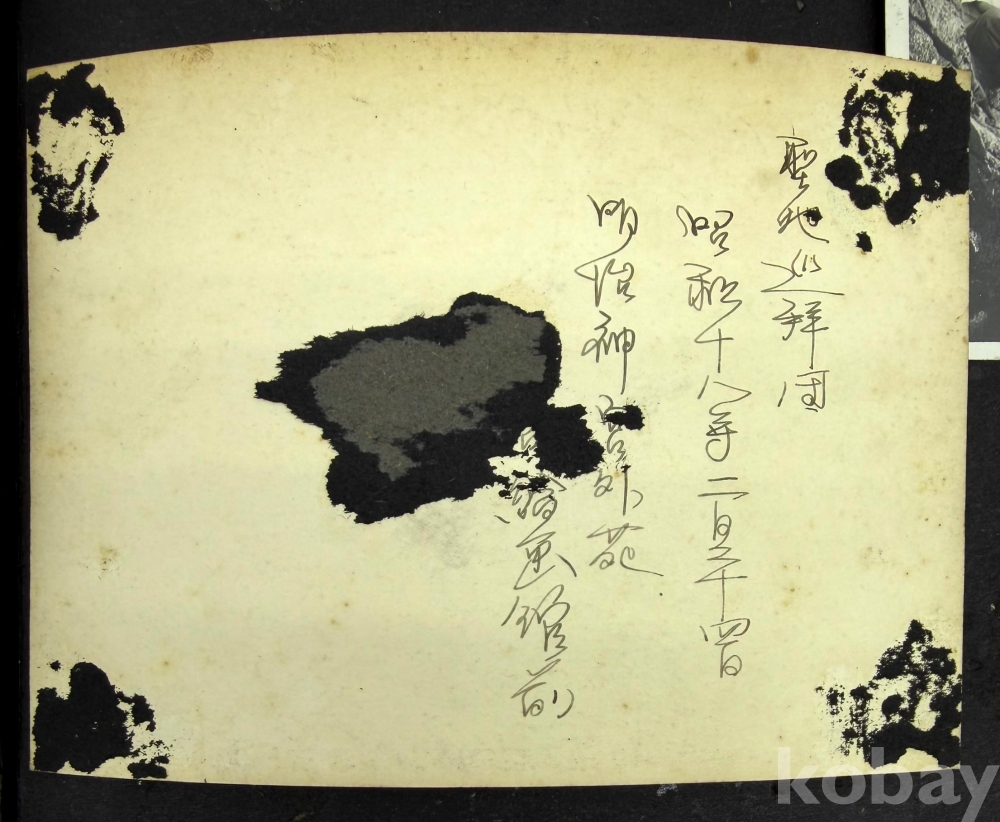 聖地巡拝団
昭和十八年二月二十四日
明治神宮外苑
絵画館前
kobay